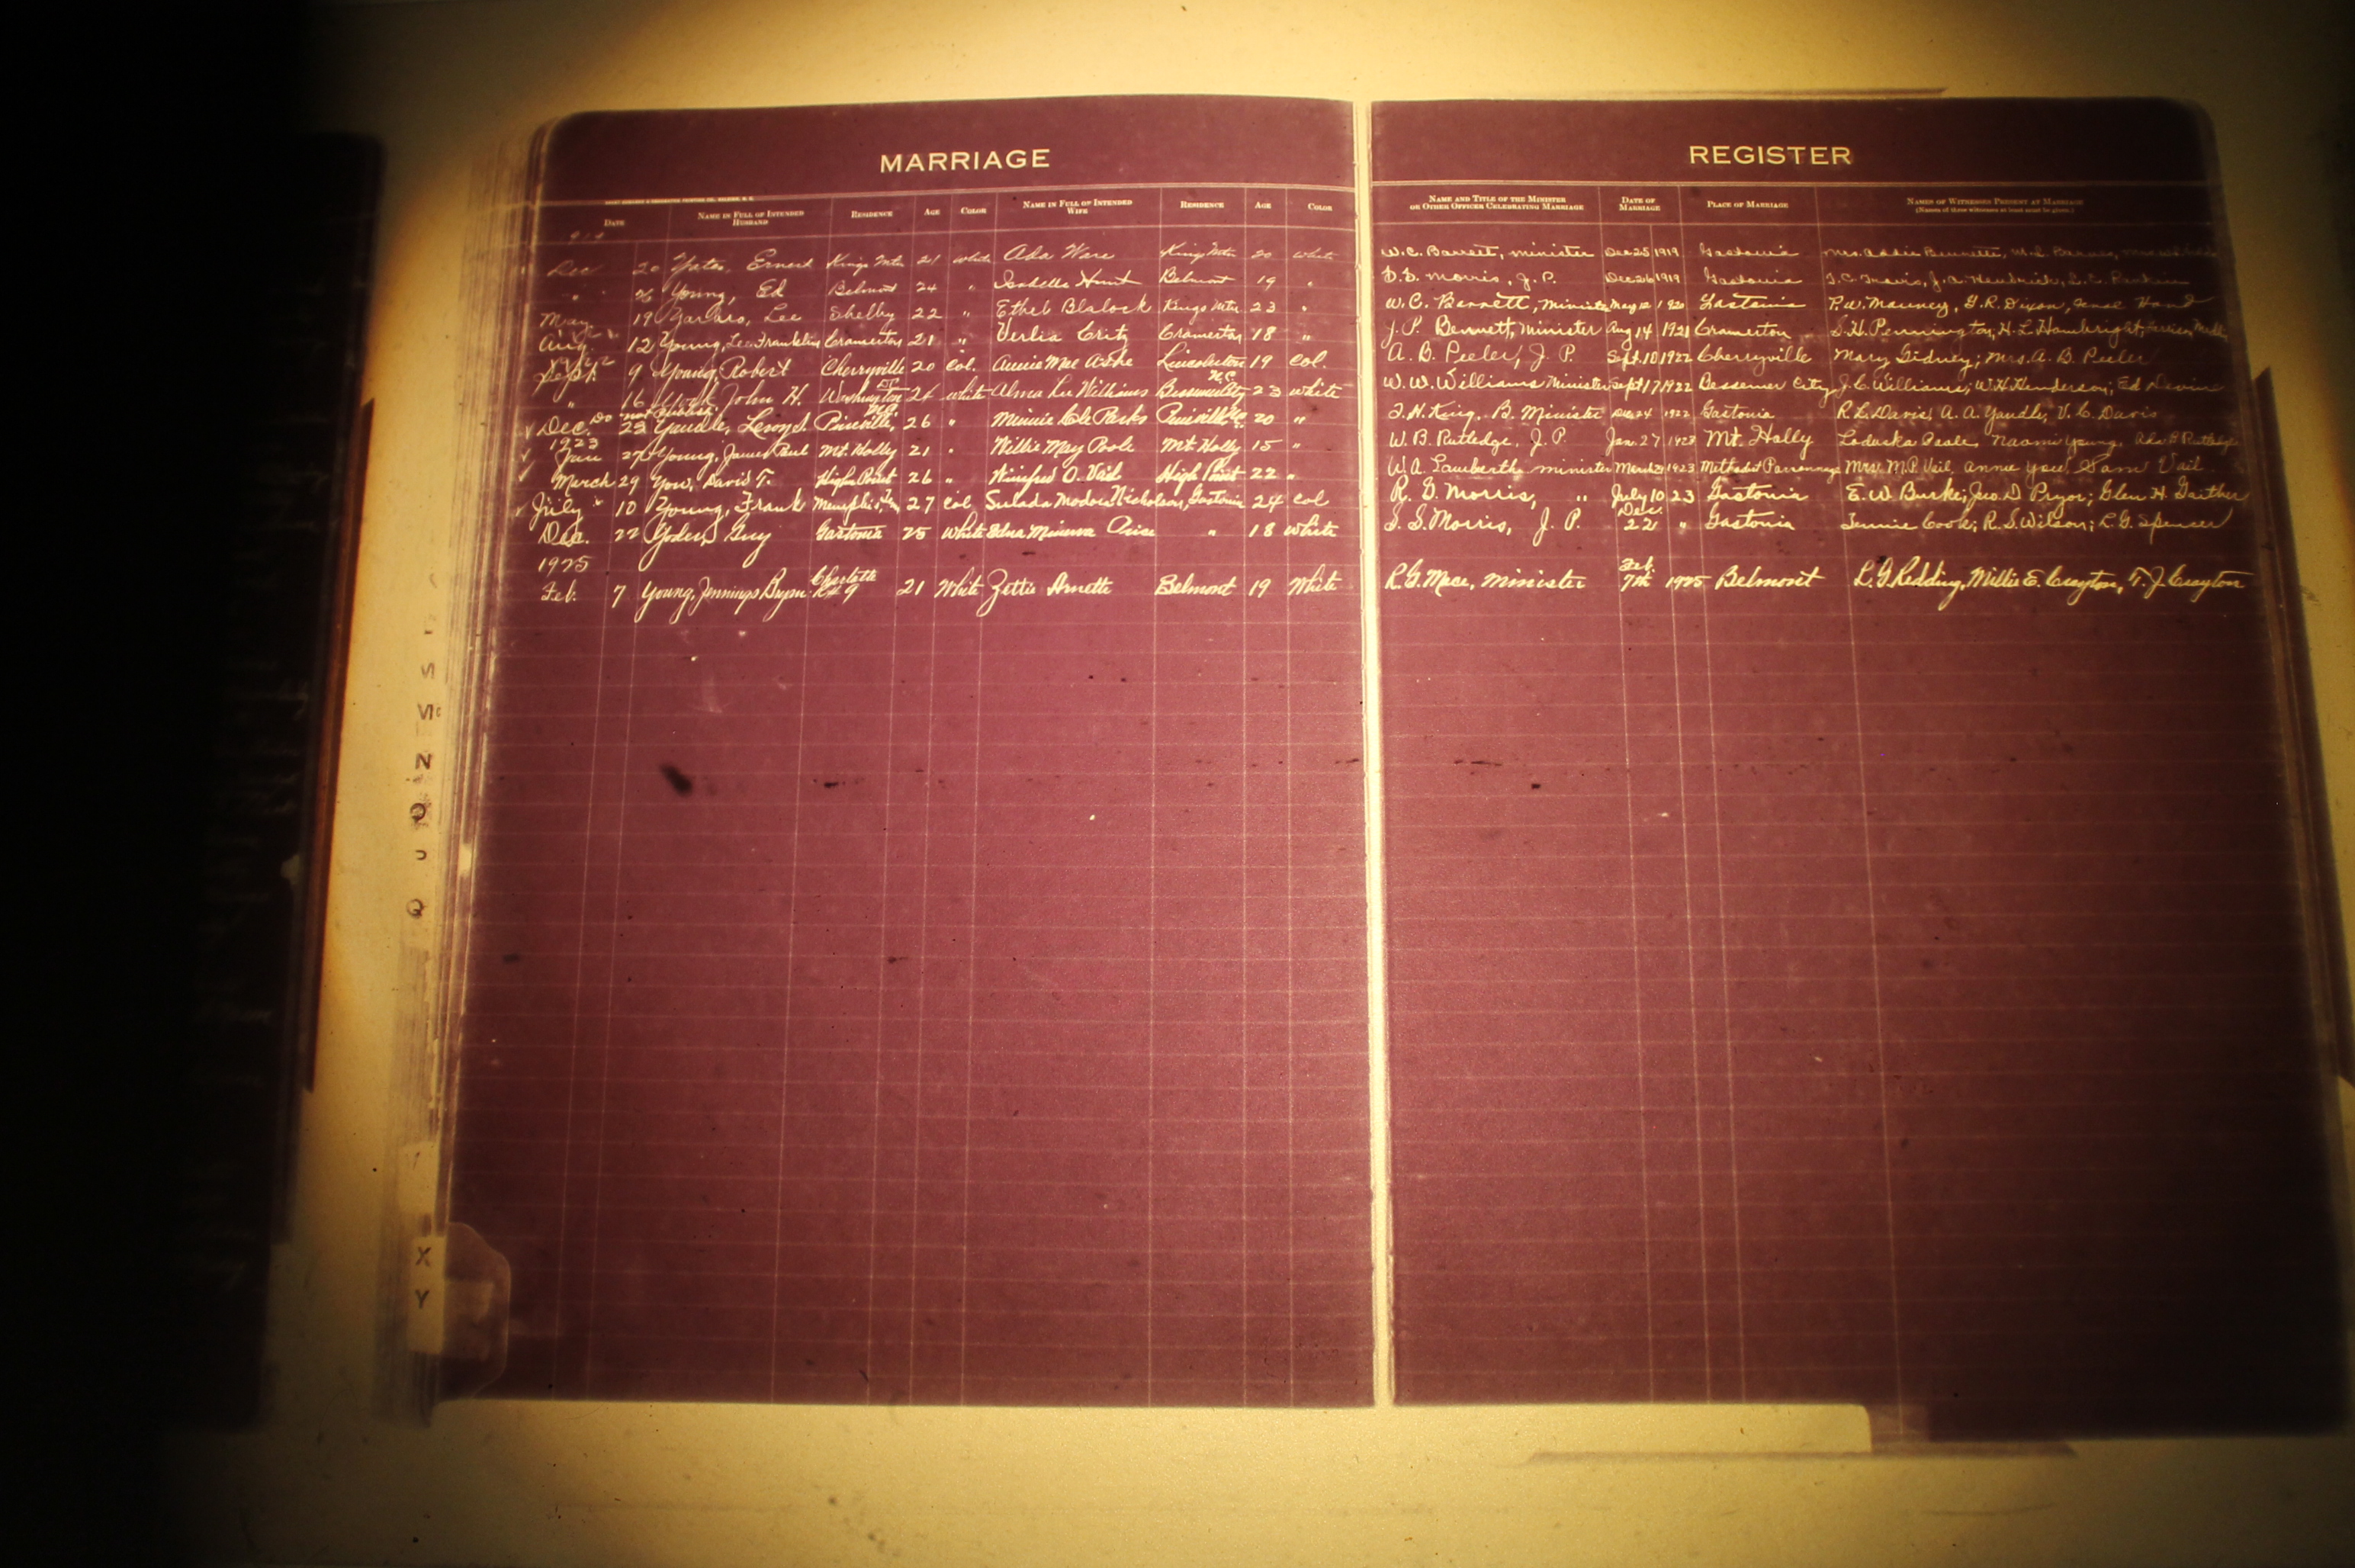 MARRIAGE
REGISTER
DATE NAME IN FULL OF INTENDED HUSBAND RESIDENCE AGE COLOR NAME IN FULL OF INTENDED WIFE RESIDENCE AGE COLOR NAME AND TITLE OF THE MINISTER OR OTHER OFFICER CELEBRATING MARRIAGE DATE OF MARRIAGE PLACE OF MARRIAGE NAMES OF WITNESSES PRESENT AT MARRIAGE
(Names of three witnesses at least must be given.)
Dec 20 Yates, Ernest Kings Mtn 21 white Ada Ware Kings Mtn 20 white W.C. Barrett, minister Dec 25 1919 Gastonia Mrs. Addie Bennette,
" 26 Young, Ed Belmont 24 " Isabelle Hunt Belmont 19 " Morris, J.P. Dec 26 1919 Gastonia
May 19 Yarbro, Lee Shelby 22 " Ethel Blalock Kings Mtn 23 " W.C. Barrett, Minister May 1920 Gastonia P.W. Mauney, G.R. Dixon,
Aug 12 Young, Lee Franklin Cramerton 21 " Verlia Critz Cramerton 18 " J.P. Bennett, Minister Aug 14 1921 Cramerton S.H. Pennington, H.L. Hambright,
Sept. 9 Young, Robert Cherryville 20 Col. Annie Mae Lincolnton 19 Col. A.B. Peeler, J.P. Sept. 10 1922 Cherryville Mary Gidney; Mrs. A.B. Peeler
" 16 York, John H. Washington 26 white Alma Lee Williams Bessemer City N.C. 23 white W.W. Williams Minister Sept 17 1922 Bessemer City J.C. Williams; W.H. Henderson; Ed Devine
Do not publish
Dec. 23 Yandle, Leroy S. Pineville, N.C. 26 " Minnie Cole Parks Pineville 20 " J.H. King, B. Minister Dec 24 1922 Gastonia R.L. Davis, A.A. Yandle, V.C. Davis
1923
Jan 27 Young, James Paul Mt. Holly 21 " Willie May Poole Mt. Holly 15 " W.B. Rutledge, J.P. Jan. 27 1923 Mt. Holly Naomi Young,
March 29 Yow, David T. High Point 26 " Winifred O. Vail High Point 22 " W.A. Lambeth minister March 1923 Methodist Parsonage Mrs. M.P. Vail, Annie Yow, Sam Vail
July 10 Young, Frank Memphis, Tn 27 Col. Nicholson, Gastonia 24 Col R.G. Morris, " July 10 23 Gastonia E.W. Burke; Jno. D Pryor; Glen H. Gaither
Dec. 22 Yoder, Guy Gastonia 25 White Edna Minerva " 18 White S.S. Morris, J.P. Dec. 22 " Gastonia Jennie Cook; R.S. Wilson; R.G. Spencer
1925
Feb. 7 Young, Jennings Bryan Charlotte R#9 21 White Zettie Arnette Belmont 19 White R.G. Mace, Minister Feb. 7th 1925 Belmont L.G. Redding, Millie E. Crayton, T.J. Crayton
N
Q
Q
X
Y